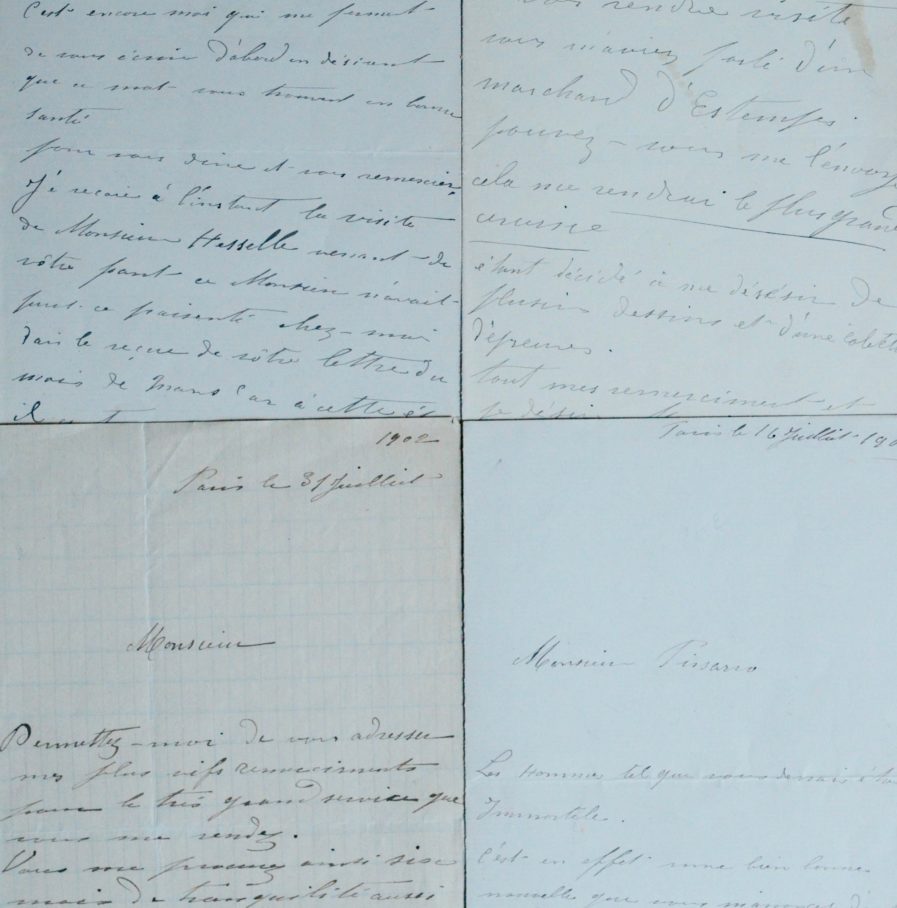 C'est encore moi qui me permet
de vous écrire d'abord en désirant
que ce mot vous trouvent en bonne
santé
pour vous dire et vous remercier
Je reçoie à l'instant la visite
de Monsieur Hesselle venant de
vôtre part ce Monsieur n'avait
put ce présenté chez-moi
dais le reçue de vôtre lettre du
mois de Mars car à cette é
il
vous rendre visite
vous m'aviez parlé d'un
marchand d'Estempes.
pouvez-vous me l'envoye
cela me rendrai le plus grand
cervice
étant décidé à me désésir de
plusieurs dessins et d'une
d'épreuves.
tout mes remerciment et
je désir
1902
Paris le 31 Juillet
Monsieur
Permettez-moi de vous adresser
mes plus vifs remerciments
pour le très grand service que
vous me rendez.
Vous me procurez ainsi six
mois de tranquilité aussi
Paris le 16 Juillet 190
Monsieur Pissarro
Les Hommes tel que vous
Immortels.
C'est en effet une bien bonne
nouvelle que vous